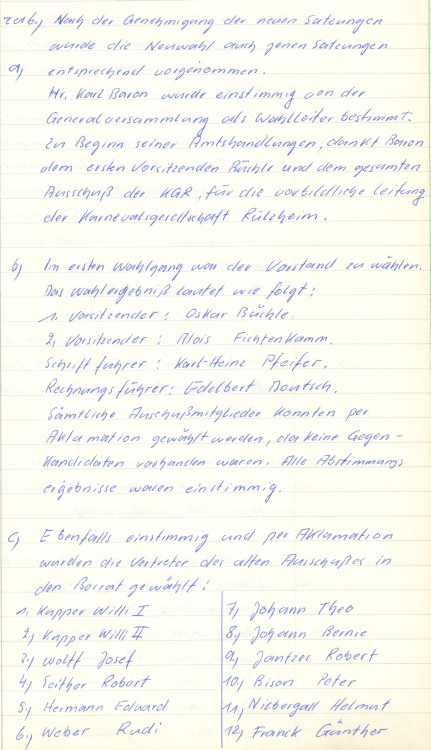 zu 6, Nach der Genehmigung der neuen Satzungen
wurde die Neuwahl auch jenen Satzungen
a, entsprechend vorgenommen.
Hr. Karl Baron wurde einstimmig von der
Generalversammlung als Wahlleiter bestimmt.
Zu Beginn seiner Amtshandlungen, dankt Baron
dem ersten Vorsitzenden Büchle und dem gesamten
Ausschuß der KGR, für die vorbildliche Leitung
der Karnevalsgesellschaft Rülzheim.
b, Im ersten Wahlgang war der Vorstand zu wählen.
Das Wahlergebniß lautet wie folgt:
1. Vorsitzender: Oskar Büchle.
2, Vorsitzender: Alois Fichtenkamm.
Schriftführer: Karl-Heinz Pfeifer.
Rechnungsführer: Edelbert Deutsch.
Sämtliche Auschußmitglieder konnten per
Aklamation gewählt werden, da keine Gegen-
Kandidaten vorhanden waren. Alle Abstimmungs
ergebnisse waren einstimmig.
c, Ebenfalls einstimmig und per Aklamation
wurden die Vertreter des alten Ausschußes in
den Beirat gewählt:
1, Kupper Willi I
2, Kupper Willi II
3, Wolff Josef
4, Seither Robert
5, Hermann Eduard
6, Weber Rudi
7, Johann Theo
8, Johann Bernie
9, Jantzer Robert
10, Bison Peter
11, Niebergall Helmut
12, Franck Günther